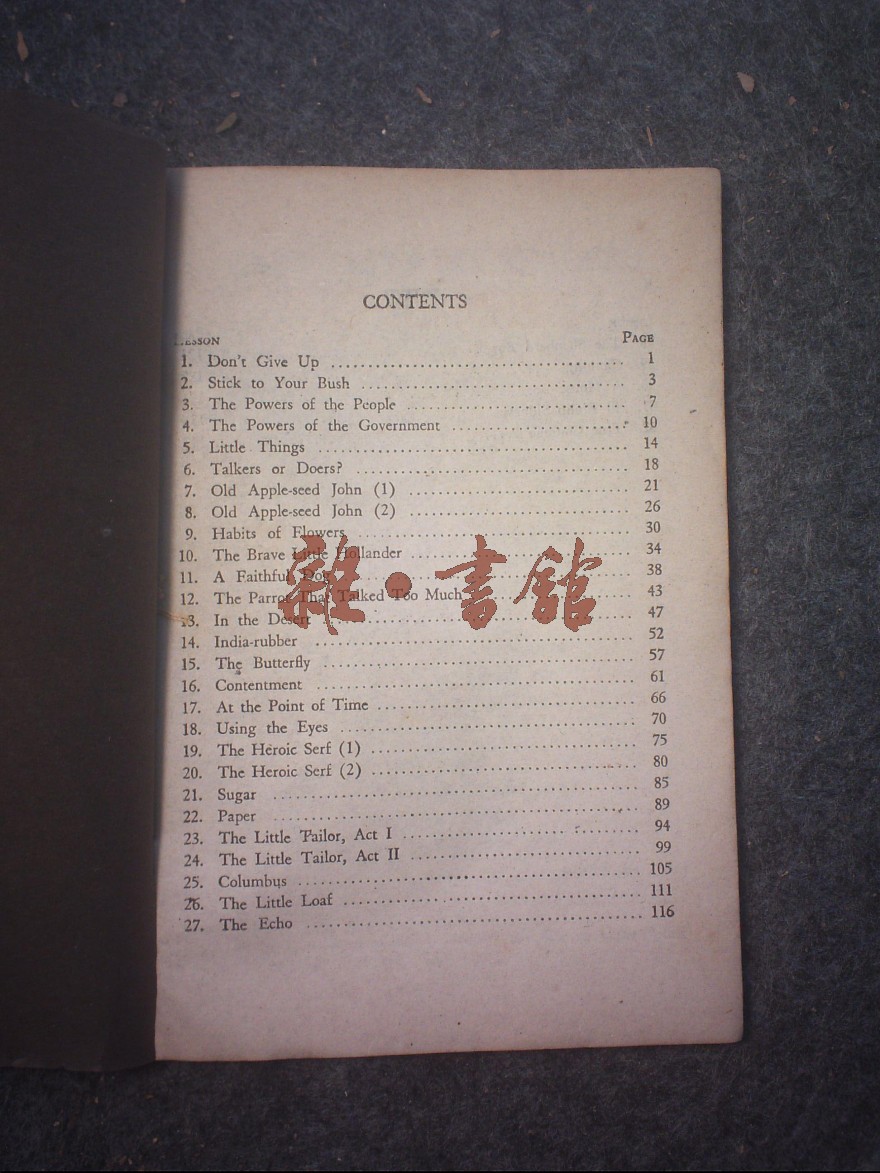 CONTENTS
LESSON PAGE
1. Don't Give Up 1
2. Stick to Your Bush 3
3. The Powers of the People 7
4. The Powers of the Government 10
5. Little Things 14
6. Talkers or Doers? 18
7. Old Apple-seed John (1) 21
8. Old Apple-seed John (2) 26
9. Habits of Flowers 30
10. The Brave Little Hollander 34
11. A Faithful Dog 38
12. The Parrot That Talked Too Much 43
13. In the Desert 47
14. India-rubber 52
15. The Butterfly 57
16. Contentment 61
17. At the Point of Time 66
18. Using the Eyes 70
19. The Heroic Serf (1) 75
20. The Heroic Serf (2) 80
21. Sugar 85
22. Paper 89
23. The Little Tailor, Act I 94
24. The Little Tailor, Act II 99
25. Columbus 105
26. The Little Loaf 111
27. The Echo 116
雜·書館